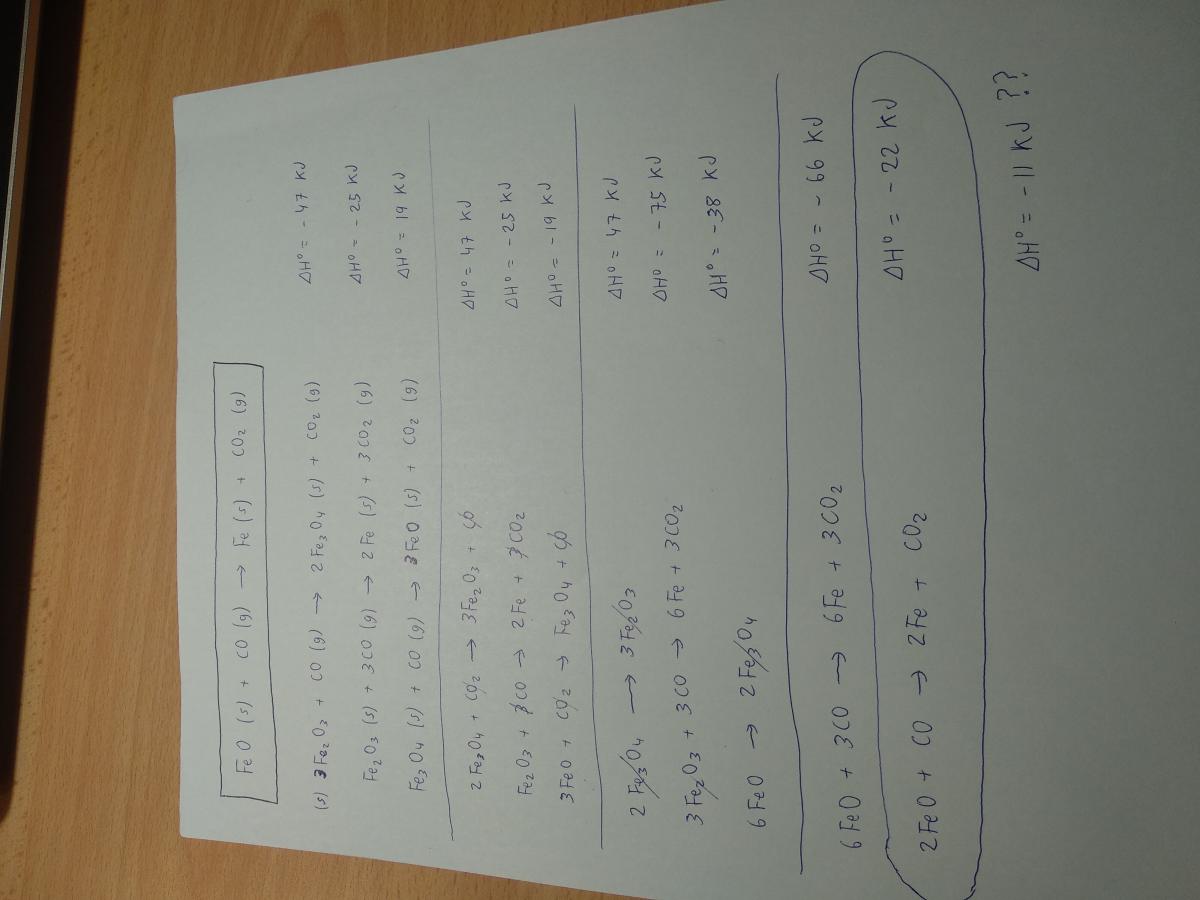 FeO (s) + CO (g) → Fe (s) + CO₂ (g)
(s) 3Fe₂O₃ + CO (g) → 2Fe₃O₄ (s) + CO₂ (g) ΔH° = -47 KJ
Fe₂O₃ (s) + 3CO (g) → 2Fe (s) + 3CO₂ (g) ΔH° = -25 KJ
Fe₃O₄ (s) + CO (g) → 3FeO (s) + CO₂ (g) ΔH° = 19 KJ
2Fe₃O₄ + CO₂ → 3Fe₂O₃ + CO ΔH° = 47 KJ
Fe₂O₃ + 3CO → 2Fe + 3CO₂ ΔH° = -25 KJ
3FeO + CO₂ → Fe₃O₄ + CO ΔH° = -19 KJ
2Fe₃O₄ → 3Fe₂O₃ ΔH° = 47 KJ
3Fe₂O₃ + 3CO → 6Fe + 3CO₂ ΔH° = -75 KJ
6FeO → 2Fe₃O₄ ΔH° = -38 KJ
6FeO + 3CO → 6Fe + 3CO₂ ΔH° = -66 KJ
2FeO + CO → 2Fe + CO₂ ΔH° = -22 KJ
ΔH° = -11 KJ ??